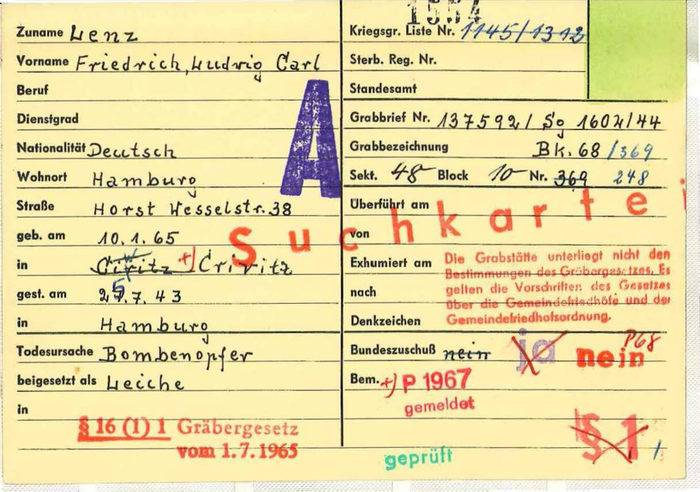 1554
Zuname Lenz
Vorname Friedrich, Ludwig Carl
Beruf
Dienstgrad
Nationalität Deutsch
Wohnort Hamburg
Straße Horst Wesselstr. 38
geb. am 10.1.65
in Ciritz +) Crivitz
gest. am 25.7.43
in Hamburg
Todesursache Bombenopfer
beigesetzt als Leiche
in
§ 16 (1) 1 Gräbergesetz
vom 1.7.1965
A
Suchkartei
Kriegsgr. Liste Nr. 1145/1312
Sterb. Reg. Nr.
Standesamt
Grabbrief Nr. 137592/ So 1602/44
Grabbezeichnung Bk. 68 /369
Sekt. 48 Block 10 Nr. 369 248
Überführt am
von
Exhumiert am
nach
Denkzeichen
Die Grabstätte unterliegt nicht den
Bestimmungen des Gräbergesetzes. Es
gelten die Vorschriften des Gesetzes
über die Gemeindefriedhöfe und der
Gemeindefriedhofsordnung.
Bundeszuschuß nein ja nein P68
Bem. +) P 1967
gemeldet
§ 1
geprüft